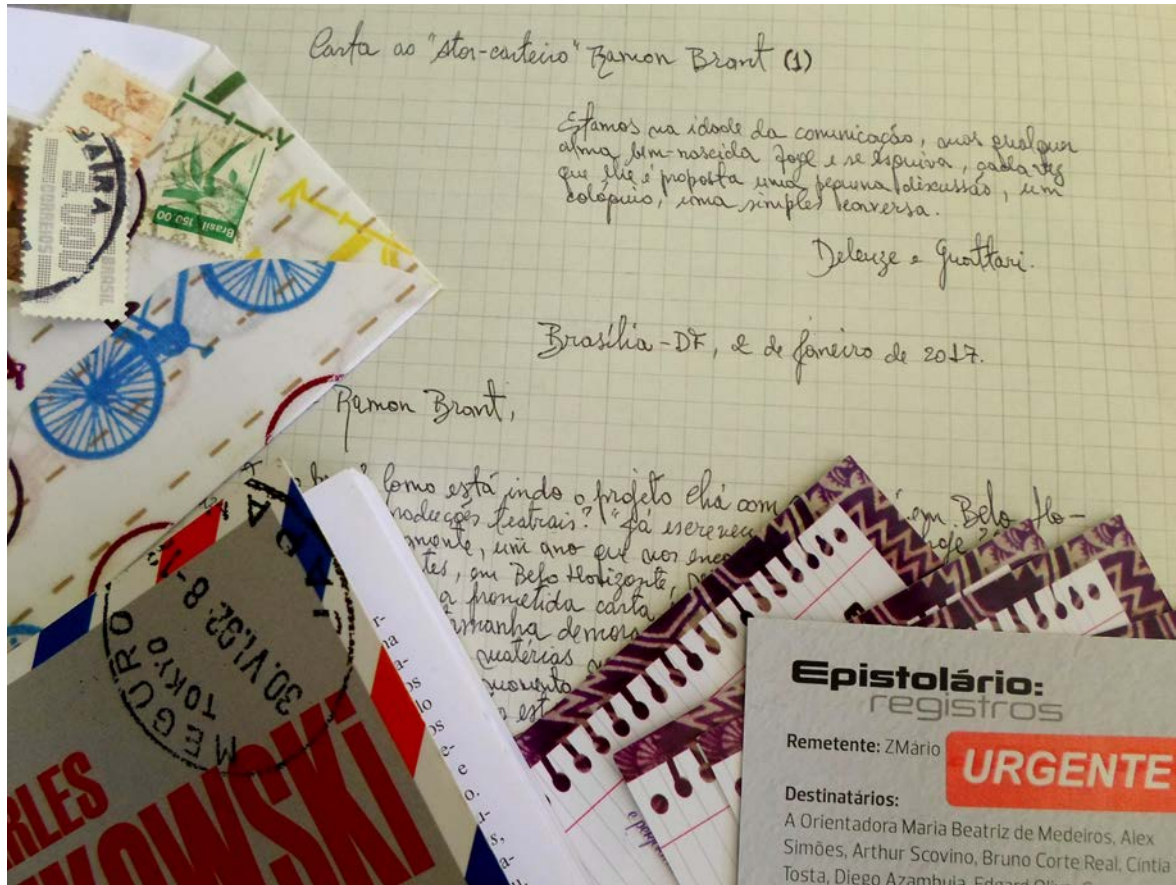 Carta ao "ator-carteiro" Ramon Brant (1)
Estamos na idade da comunicação, mas qualquer
alma bem-nascida foge e se esquiva, cada vez
que lhe é proposta uma pequena discussão, um
colóquio, uma simples conversa.
Deleuze e Guattari.
Brasília-DF, 2 de janeiro de 2017.
Ramon Brant,
Como está indo o projeto chá com
em Belo Ho-
teatrais? "Já escreveu
hoje?
mente, um ano que nos
tes, em Belo Horizonte,
a prometida carta
tamanha
matérias
momento
CORREIOS
BRASIL
3.000
AIRA
Brasil 150,00
MEGURO
TOKYO
30.VI.92.8-
RLES
KOWSKI
Epistolário:
registros
Remetente: ZMário
URGENTE
Destinatários:
A Orientadora Maria Beatriz de Medeiros, Alex
Simões, Arthur Scovino, Bruno Corte Real, Cíntia
Tosta, Diego Azambuja, Edgard